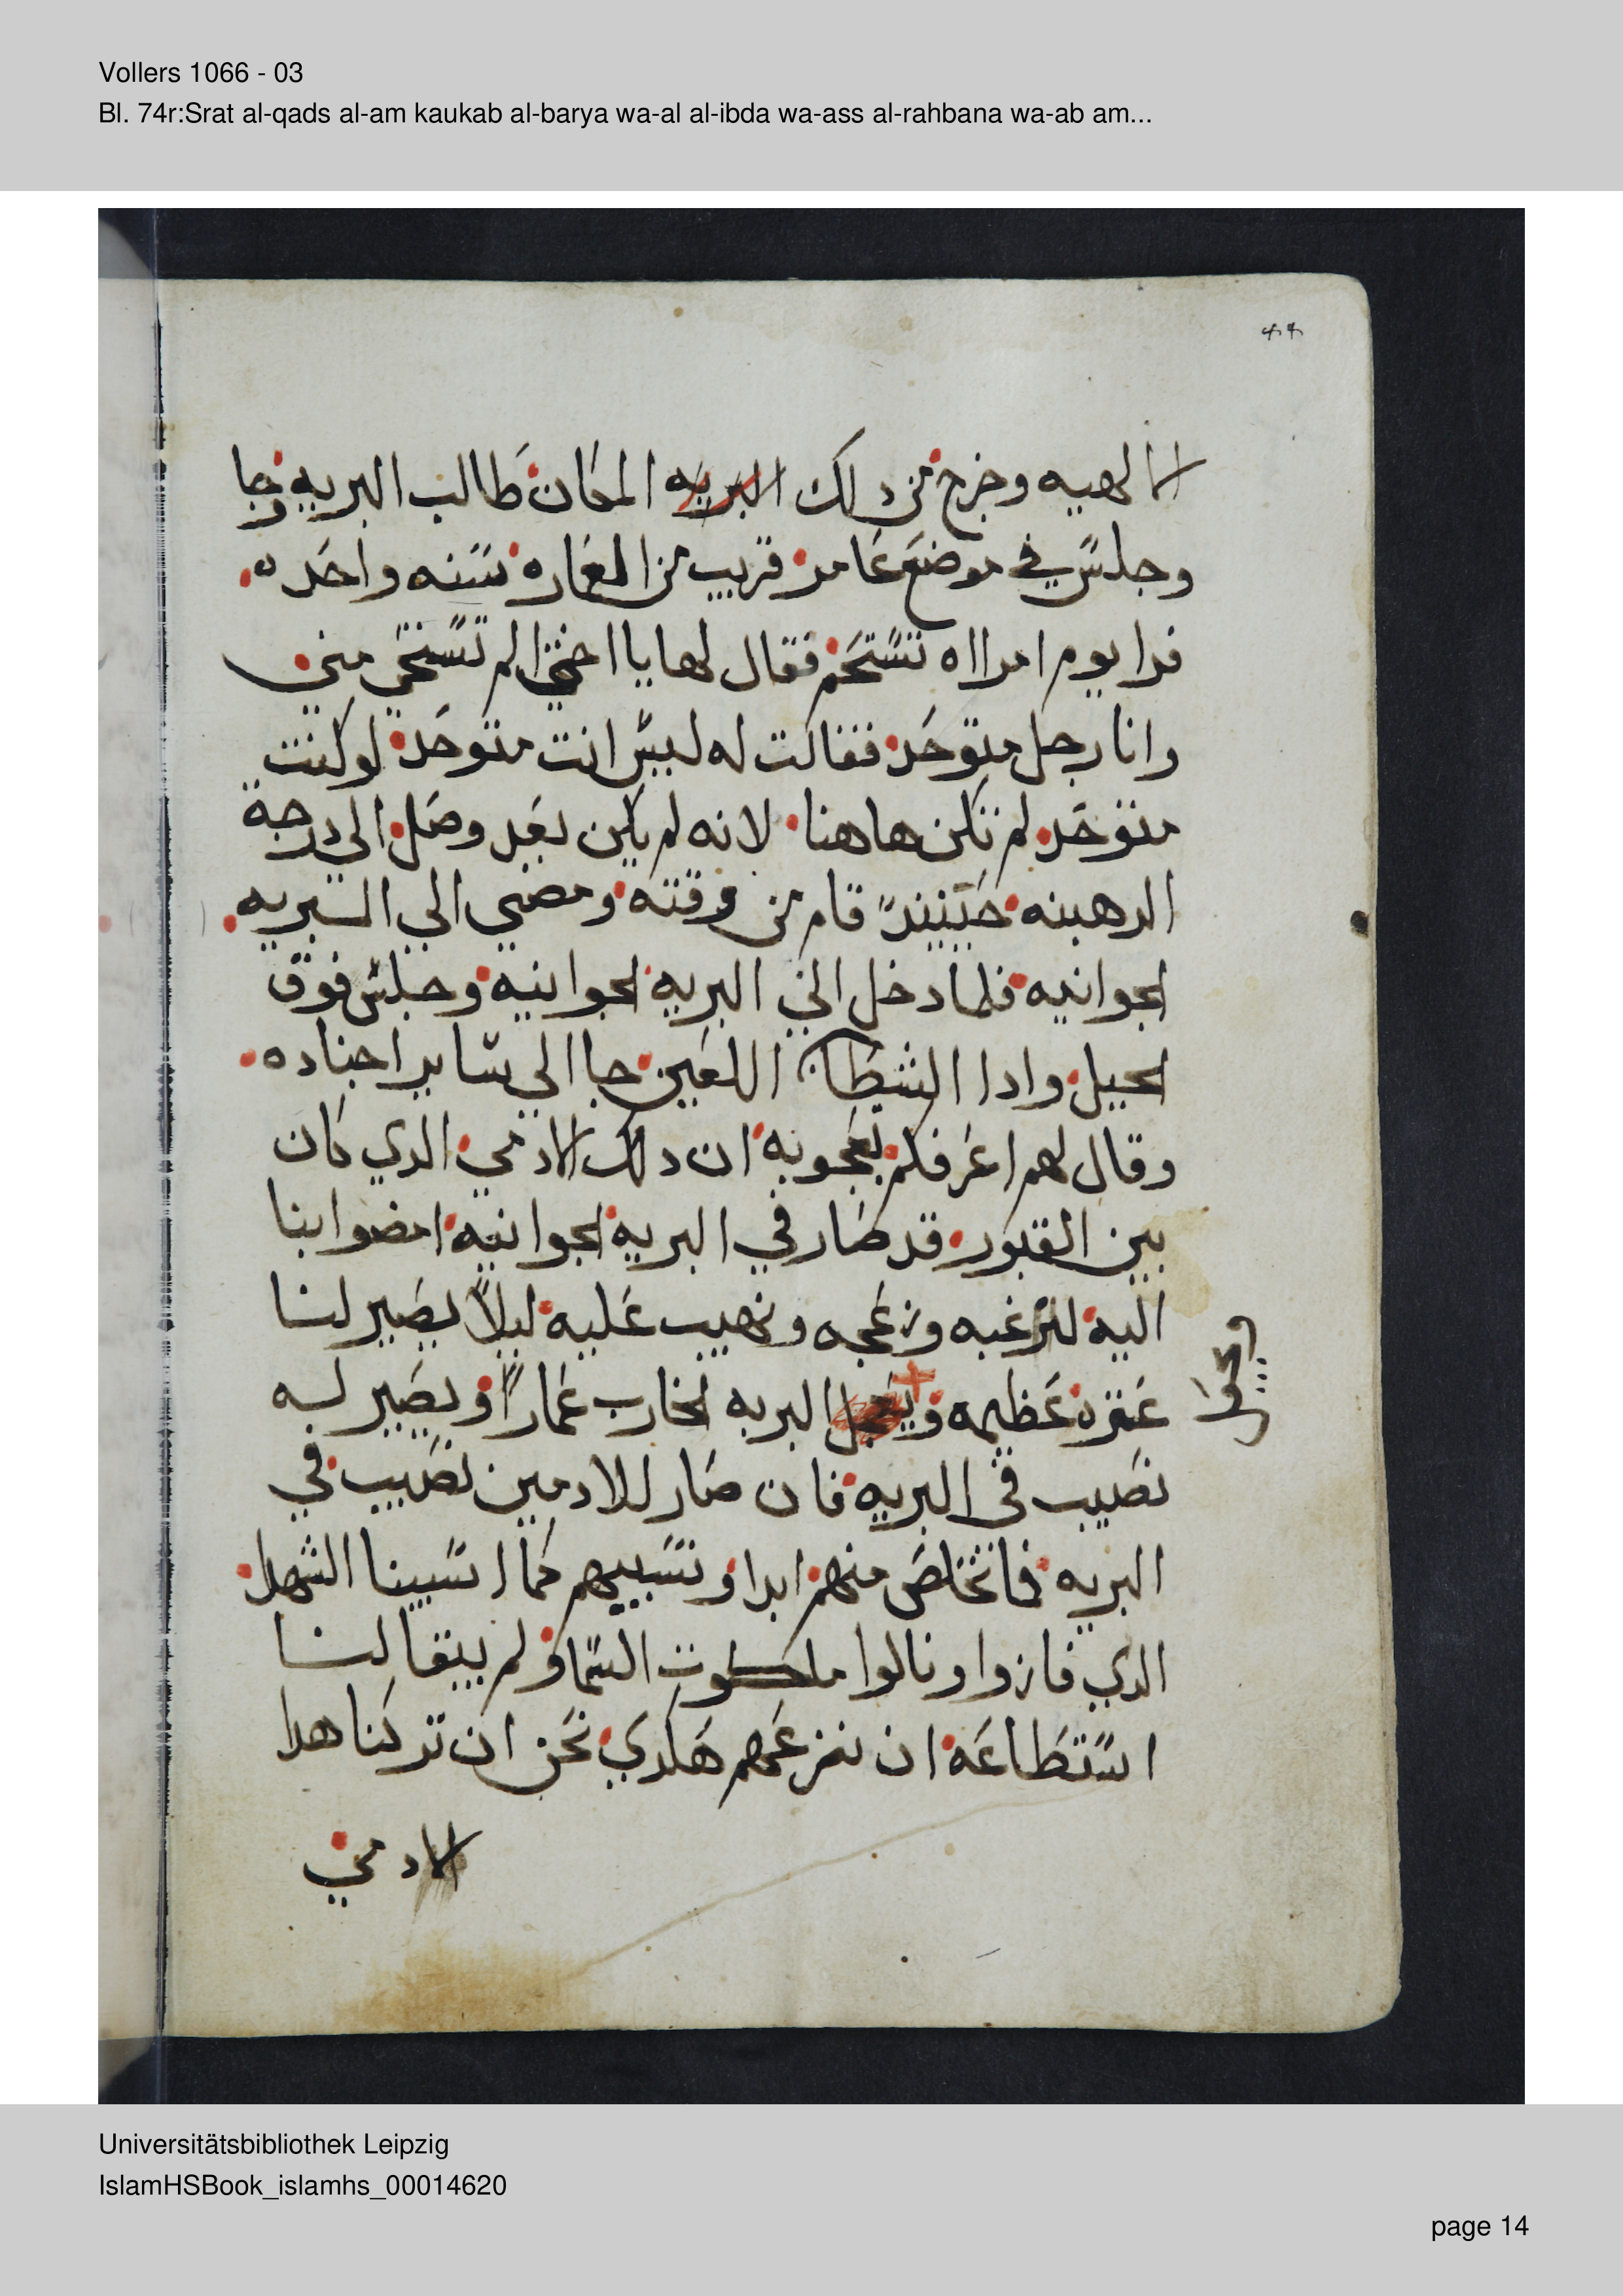 Vollers 1066 - 03
Bl. 74r:Srat al-qads al-am kaukab al-barya wa-al al-ibda wa-ass al-rahbana wa-ab am...
الالهيه وخرج من دلك البريه المكان طالب البريه وجا
وجلس في موضع عامر قريب من المغاره سنه واحده
فرا يوم امرااه تستحم فقال لها يا اختي الم تستحي مني
وانا رجل متوحد فقالت له ليس انت متوحد لو كنت
متوحد لم تكن هاهنا لانه لم يكن بعد وصل الي درجة
الرهبنه حينيند قام من وقته ومضي الي البريه
الجوانيه فلما دخل الي البريه الجوانيه وجلس فوق
الجبل وادا الشيطان اللعين جا الي ساير اجناده
وقال لهم اعرفكم بعجوبه ان دلك الادمي الدي كان
بين القبور قد صار في البريه الجوانيه امضوا بنا
اليه لنرعبه ونزعجه ونهيب عليه ليلاً يصير لنا
عتره عظيمه و البريه الخارب عماراً ويصير له
نصيب في البريه فان صار للادمين نصيب في
البريه فما نخلص منهم ابدا ونسبيهم كما اسبينا الشهدا
الدي فازوا ونالوا ملكوت السما ولم يبقا لنا
استطاعه ان نزعجهم هكدي نحن ان تركنا هدا
الادمي
Universitätsbibliothek Leipzig
IslamHSBook_islamhs_00014620
page 14